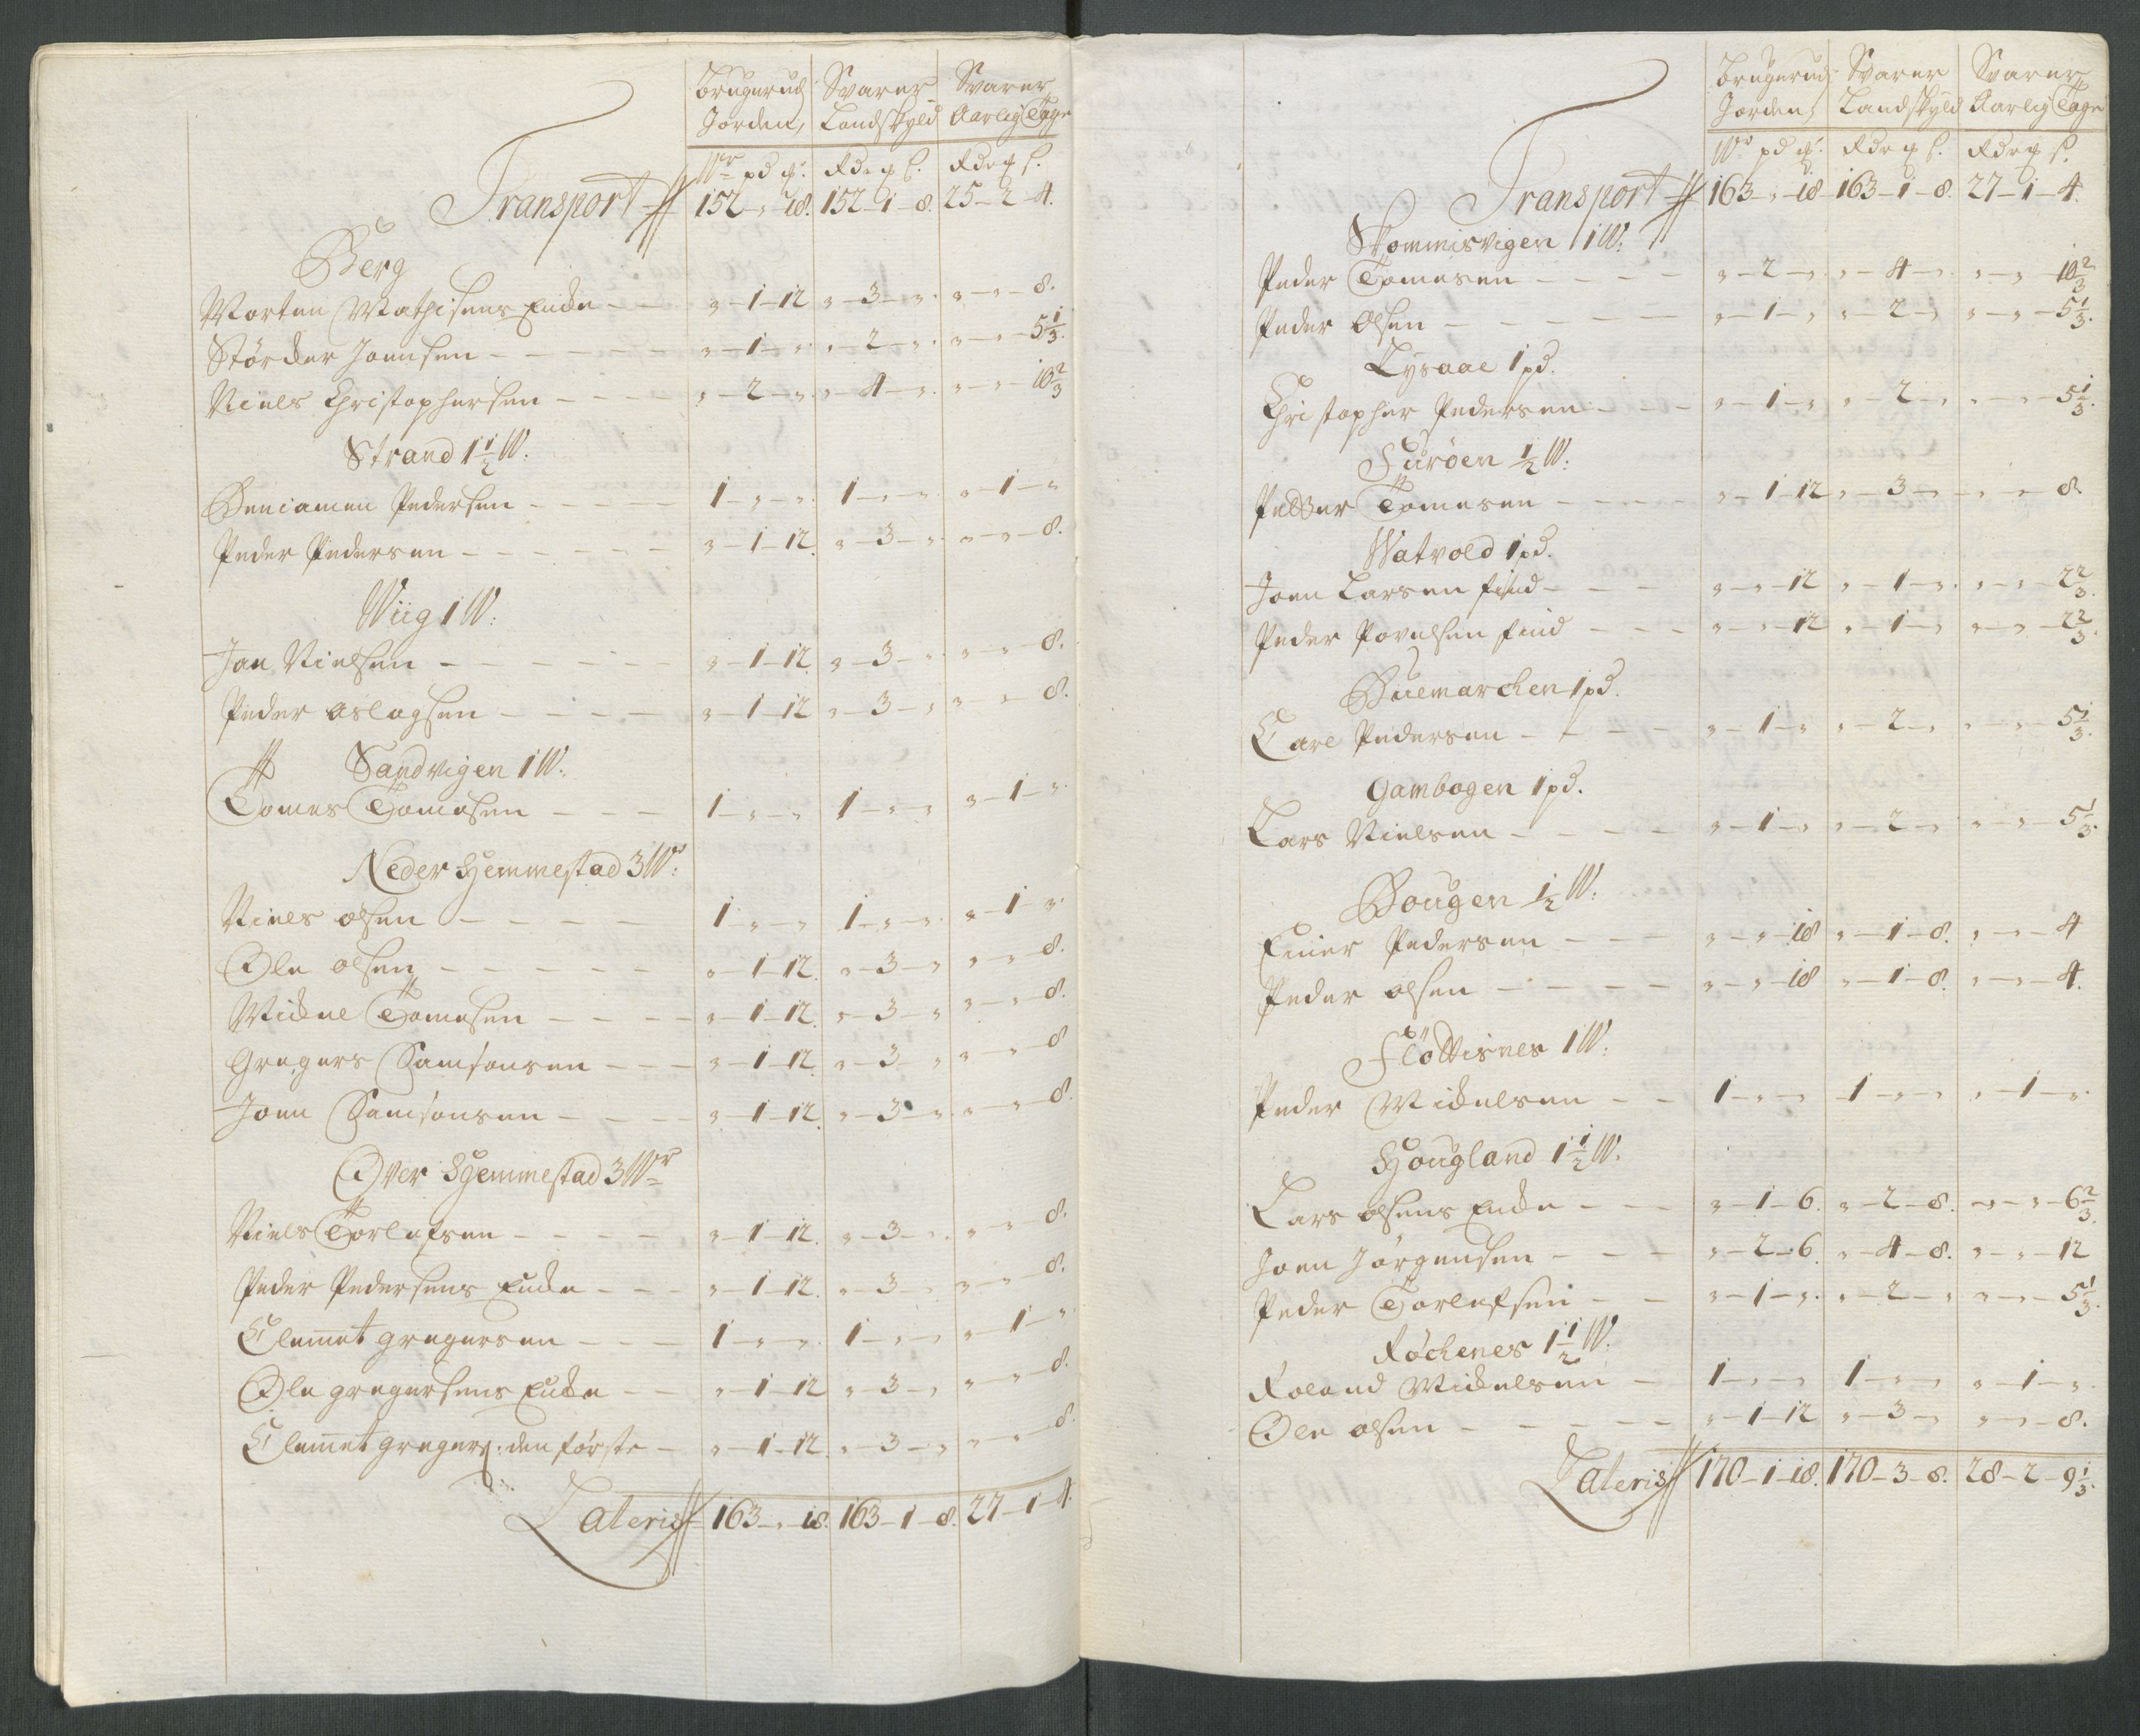 Brugerud Svarer Svarer
Jorden, Landskyld Aarlig Tage
Wr pd ꝶ: Rdr ꝶ ß. Rdr ꝶ ß.
Transport 152 - „ - 18. 152 - 1 - 8. 25 - 2 - 4.
Berg
Morten Mathisens Enke - - „ - 1 - 12 „ - 3 - „. „ - „ - 8.
Störcker Joensen - - - - „ - 1 - „. „ - 2 - „. „ - „ - 5 1/3.
Niels Christophersen - - - - „ - 2 - „. „ - 4 - „. „ - „ - 10 2/3
Strand 1 1/2 W:
Beniamen Pedersen - - - - 1 - „ - „. 1 - „ - „. „ - 1 - „
Peder Pedersen - - - - - - „ - 1 - 12. „ - 3 - „. „ - „ - 8.
Wiig 1 W:
Jan Nielsen - - - - - - „ - 1 - 12 „ - 3 - „. „ - „ - 8.
Peder Aslagsen - - - - - „ - 1 - 12 „ - 3 - „ „ - „ - 8.
Sandvigen 1 W:
Tomes Tomesen - - - 1 - „ - „ 1 - „ - „ „ - 1 - „.
Neder Hemmestad 3 Wr:
Niels olsen - - - - - 1 - „ - „ 1 - „ - „. „ - 1 - „.
Ole olsen - - - - - - „ - 1 - 12. „ - 3 - „ „ - „ - 8.
Mickel Tomesen - - - - „ - 1 - 12. „ - 3 - „ „ - „ - 8.
Gregers Samsonsen - - - „ - 1 - 12. „ - 3 - „ „ - „ - 8
Joen Samsonsen - - - - „ - 1 - 12. „ - 3 - „. „ - „ - 8.
Over Hemmestad 3 Wr
Niels Torlefsen - - - - „ - 1 - 12. „ - 3 - „. „ - „ - 8.
Peder Pedersens Enke - - - „ - 1 - 12. „ - 3 - „ „ - „ - 8.
Clemet gregersen - - - 1 - „ - „. 1 - „ - „ „ - 1 - „
Ole gregersens Enke - - „ - 1 - 12 „ - 3 - „ „ - „ - 8.
Clemet gregers: den förste - „ - 1 - 12. „ - 3 - „ „ - „ - 8.
Lateris 163 - „ - 18. 163 - 1 - 8. 27 - 1 - 4.
Brugerud Svarer Svarer
Jorden, Landskyld Aarlig Tage
Wr pd ꝶ: Rdr ꝶ ß. Rdr ꝶ ß.
Transport 163 - „ - 18 163 - 1 - 8. 27 - 1 - 4.
Skommisvigen 1 W:
Peder Tomesen - - - - „ - 2 - „. „ - 4 - „. „ - „ 10 2/3
Peder Olsen - - - - - - „ - 1 - „ „ - 2 - „ „ - „ - 5 1/3.
Lysaae 1 pd.
Christopher Pedersen - - - „ - 1 - „ „ - 2 - „ „ - „ - 5 1/3.
Furöen 1/2 W:
Petter Tomesen - - - - „ - 1 - 12 „ - 3 - „ „ - „ - 8.
Watvold 1 pd.
Joen Larsen find - - - „ - „ - 12 „ - 1 - „. „ - „ - 2 2/3.
Peder Povelsen find - - - „ - „ - 12 „ - 1 - „ „ - „ - 2 2/3.
Buemarchen 1 pd.
Carl Pedersen - - - - „ - 1 - „ „ - 2 - „ „ - „ - 5 1/3.
Gambogen 1 pd.
Lars Nielsen - - - - „ - 1 - „ „ - 2 - „ „ - „ - 5 1/3.
Bougen 1/2 W:
Einer Pedersen - - - „ - „ - 18 „ - 1 - 8. „ - „ - 4
Peder olsen - - - - - „ - „ - 18 „ - 1 - 8. „ - „ - 4.
Flöttisnes 1 W:
Peder Mickelsen - - 1 - „ - „ 1 - „ - „ „ - 1 - „.
Hougland 1 1/2 W.
Lars olsens Enke - - - „ - 1 - 6. „ - 2 - 8. „ - „ - 6 2/3.
Joen Jörgensen - - - „ - 2 - 6. „ - 4 - 8. „ - „ - 12
Peder Torlefsen - - „ - 1 - „. „ - 2 - „ „ - „ - 5 1/3.
Röckenes 1 1/2 W:
Roland Mickelsen - 1 - „ - „ 1 - „ - „ „ - 1 - „.
Ole olsen - - - - - - „ - 1 - 12 „ - 3 - „ „ - „ - 8.
Lateris 170 - 1 - 18. 170 - 3 - 8. 28 - 2 - 9 1/3.